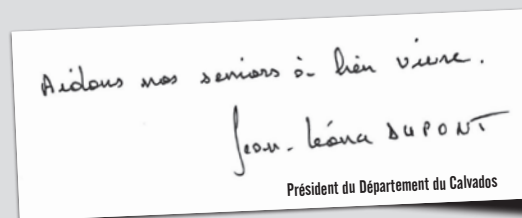 Aidons nos seniors à bien vivre.
Jean-Léonce DUPONT
Président du Département du Calvados